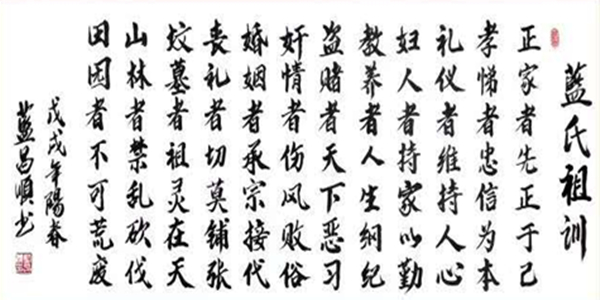 藍氏祖训
正家者先正于己
孝悌者忠信为本
礼仪者维持人心
妇人者持家以勤
教养者人生纲纪
盗赌者天下恶习
奸情者伤风败俗
婚姻者承宗接代
丧礼者切莫铺张
坟墓者祖灵在天
山林者禁乱砍伐
田园者不可荒废
戊戌年陽春
藍昌順书